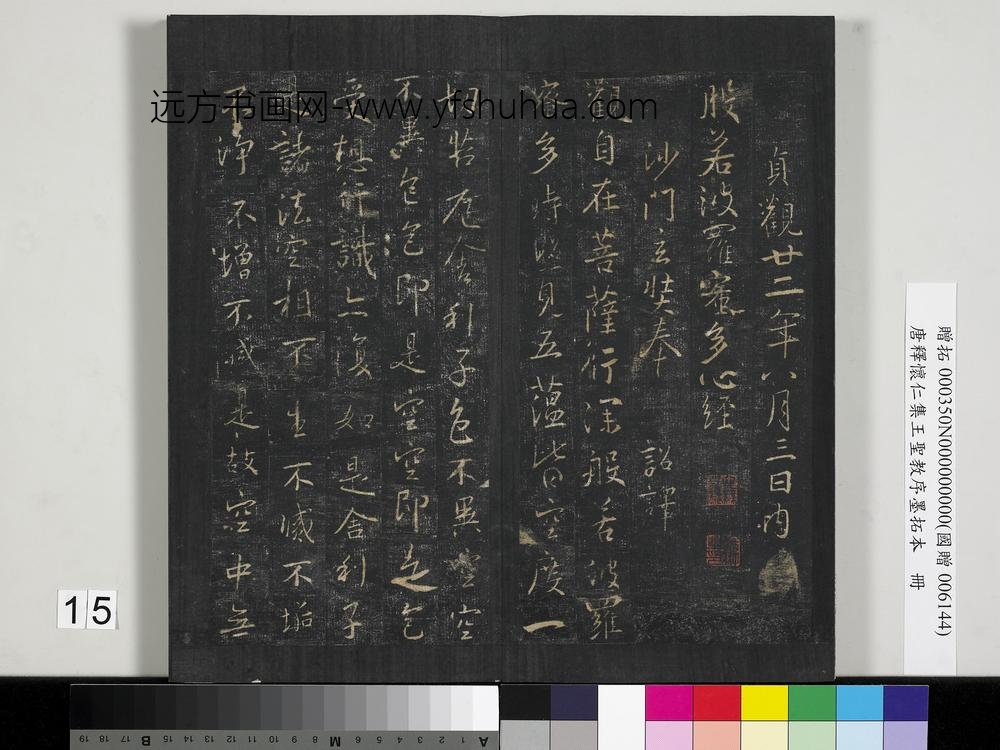 貞觀廿二年八月三日內
般若波羅蜜多心經
沙門玄奘奉 詔譯
觀自在菩薩行深般若波羅
蜜多時照見五蘊皆空度一
切苦厄舍利子色不異空空
不異色色即是空空即是色
受想行識亦復如是舍利子
是諸法空相不生不滅不垢
不淨不增不減是故空中無
远方书画网-www.yfshuhua.com
贈拓 000350N000000000(國贈 006144)
唐釋懷仁集王聖教序墨拓本 冊
15
A 1 2 3 4 5 6 7 M 8 9 10 11 12 13 14 15 B 16 17 18 19